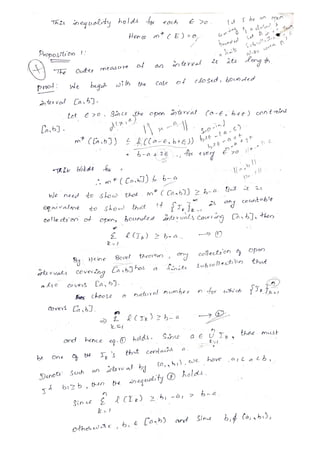 This inequality holds for each ε > 0.
Hence m*(E) = 0.
Proposition 1:
The outer measure of an interval is its length.
Proof: We begin with the case of closed, bounded
interval [a,b].
Let ε > 0. Since the open interval (a-ε, b+ε) contains
[a,b].
m*([a,b]) ≤ ℓ((a-ε, b+ε))
= b-a+2ε ., for every ε > 0
This holds for
∴ m*([a,b]) ≤ b-a
We need to show that m*([a,b]) ≥ b-a. But is is
equivalent to show that if {I_k}_{k=1}^∞ is any countable
collection of open, bounded intervals covering [a,b], then
∞ Σ k=1 ℓ(I_k) ≥ b-a → ①
By Heine Borel theorem, any collection of open
intervals covering [a,b] has a finite subcollection that
also covers [a,b].
choose a natural number n for which {I_k}_{k=1}^n
covers [a,b].
⇒ n Σ k=1 ℓ(I_k) ≥ b-a → ②
and hence eq. ① holds. Since a ∈ ∪ I_k, there must
be one of the I_k's that contains a.
Denote such an interval by (a₁,b₁). We have a₁<a<b₁
If b₁≥b, then the inequality ② holds.
Since n Σ k=1 ℓ(I_k) ≥ b₁-a₁ > b-a
Otherwise, b₁ ∈ [a,b) and since b₁ ∉ (a₁,b₁),